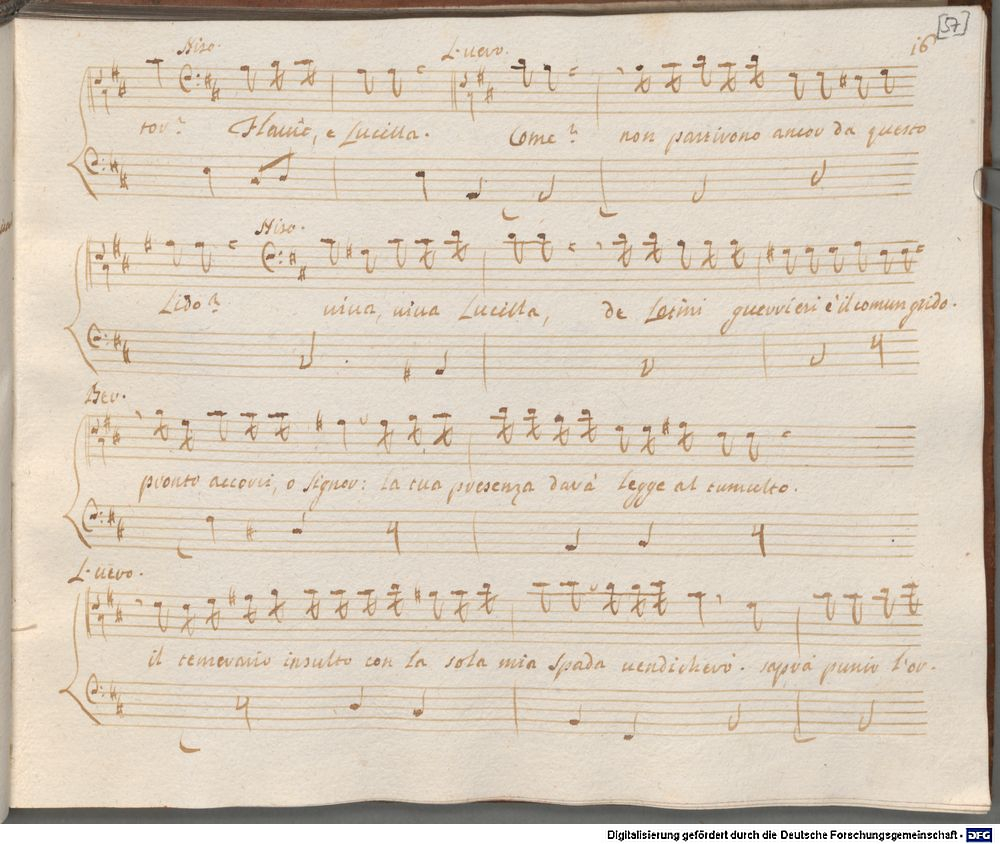 [57]
16
Niso. L. vero.
tor? Flavie, e Lucilla. Come? non partirono ancor da questo
Niso.
Lido? viva, viva Lucilla, de Latini guerrieri è il comun grido.
Ber.
pronto accorri, o Signor: la tua presenza darà legge al tumulto.
L. vero.
il temerario insulto con la sola mia spada vendicherò. saprà punir l'or-
Digitalisierung gefördert durch die Deutsche Forschungsgemeinschaft - DFG